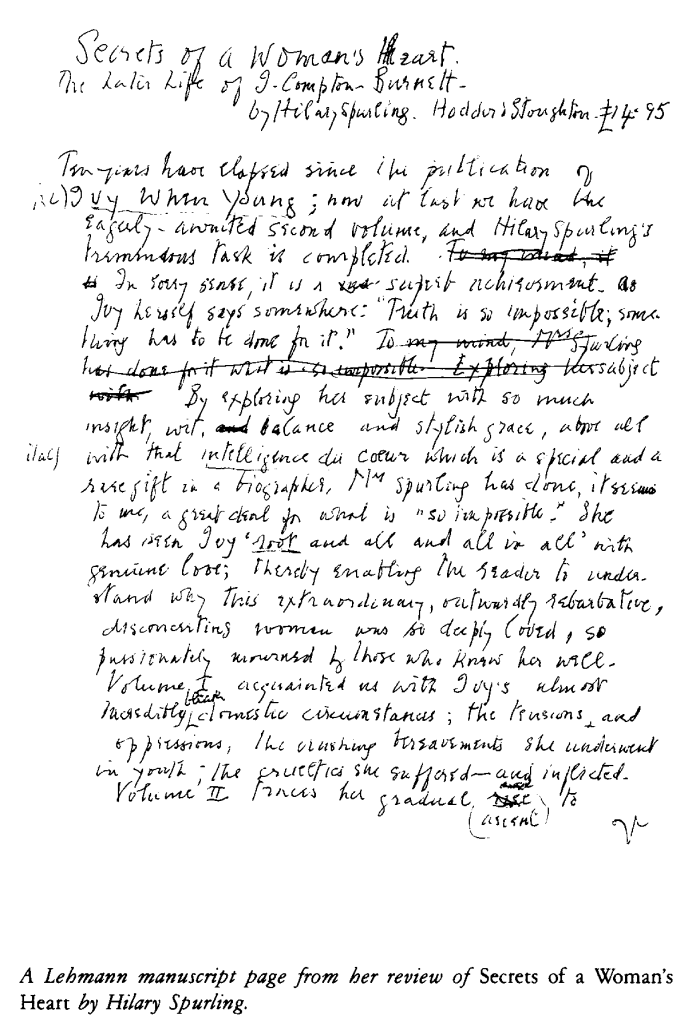 Secrets of a Woman's Heart.
The Later Life of I. Compton-Burnett -
by Hilary Spurling. Hodder & Stoughton £14.95
Ten years have elapsed since the publication of
Ivy When Young; now at last we have the
eagerly-awaited second volume, and Hilary Spurling's
tremendous task is completed. To my mind, it
is In every sense, it is a superb achievement. As
Ivy herself says somewhere: "Truth is so impossible; some-
thing has to be done for it." To my mind, Mrs Spurling
has done for it what is so impossible. Exploring her subject
with By exploring her subject with so much
insight, wit, and balance and stylish grace, above all
ital) with that intelligence du coeur which is a special and a
rare gift in a biographer, Mrs Spurling has done, it seems
to me, a great deal for what is "so impossible." She
has seen Ivy 'root and all and all in all' with
genuine love; thereby enabling the reader to under-
stand why this extraordinary, outwardly rebarbative,
disconcerting woman was so deeply loved, so
passionately mourned by those who knew her well.
Volume I acquainted us with Ivy's almost
incredibly bleak domestic circumstances; the tensions, and
oppressions, the crushing bereavements she underwent
in youth; the cruelties she suffered — and inflicted.
Volume II traces her gradual rise to
(ascent)
A Lehmann manuscript page from her review of Secrets of a Woman's
Heart by Hilary Spurling.